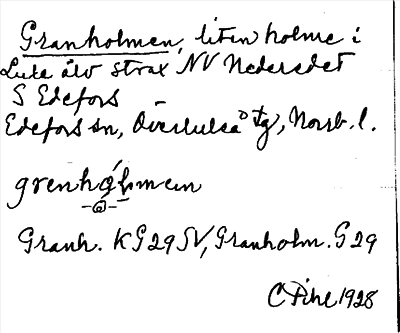 Granholmen, liten holme i
Lule älv strax NV Nedersdet
S Edefors
Edefors sn, Överluleå tg, Norrb. l.
grenhó̱ḻmen
-@-
Granh. KG29SV, Granholm. G29
C Pihl 1928